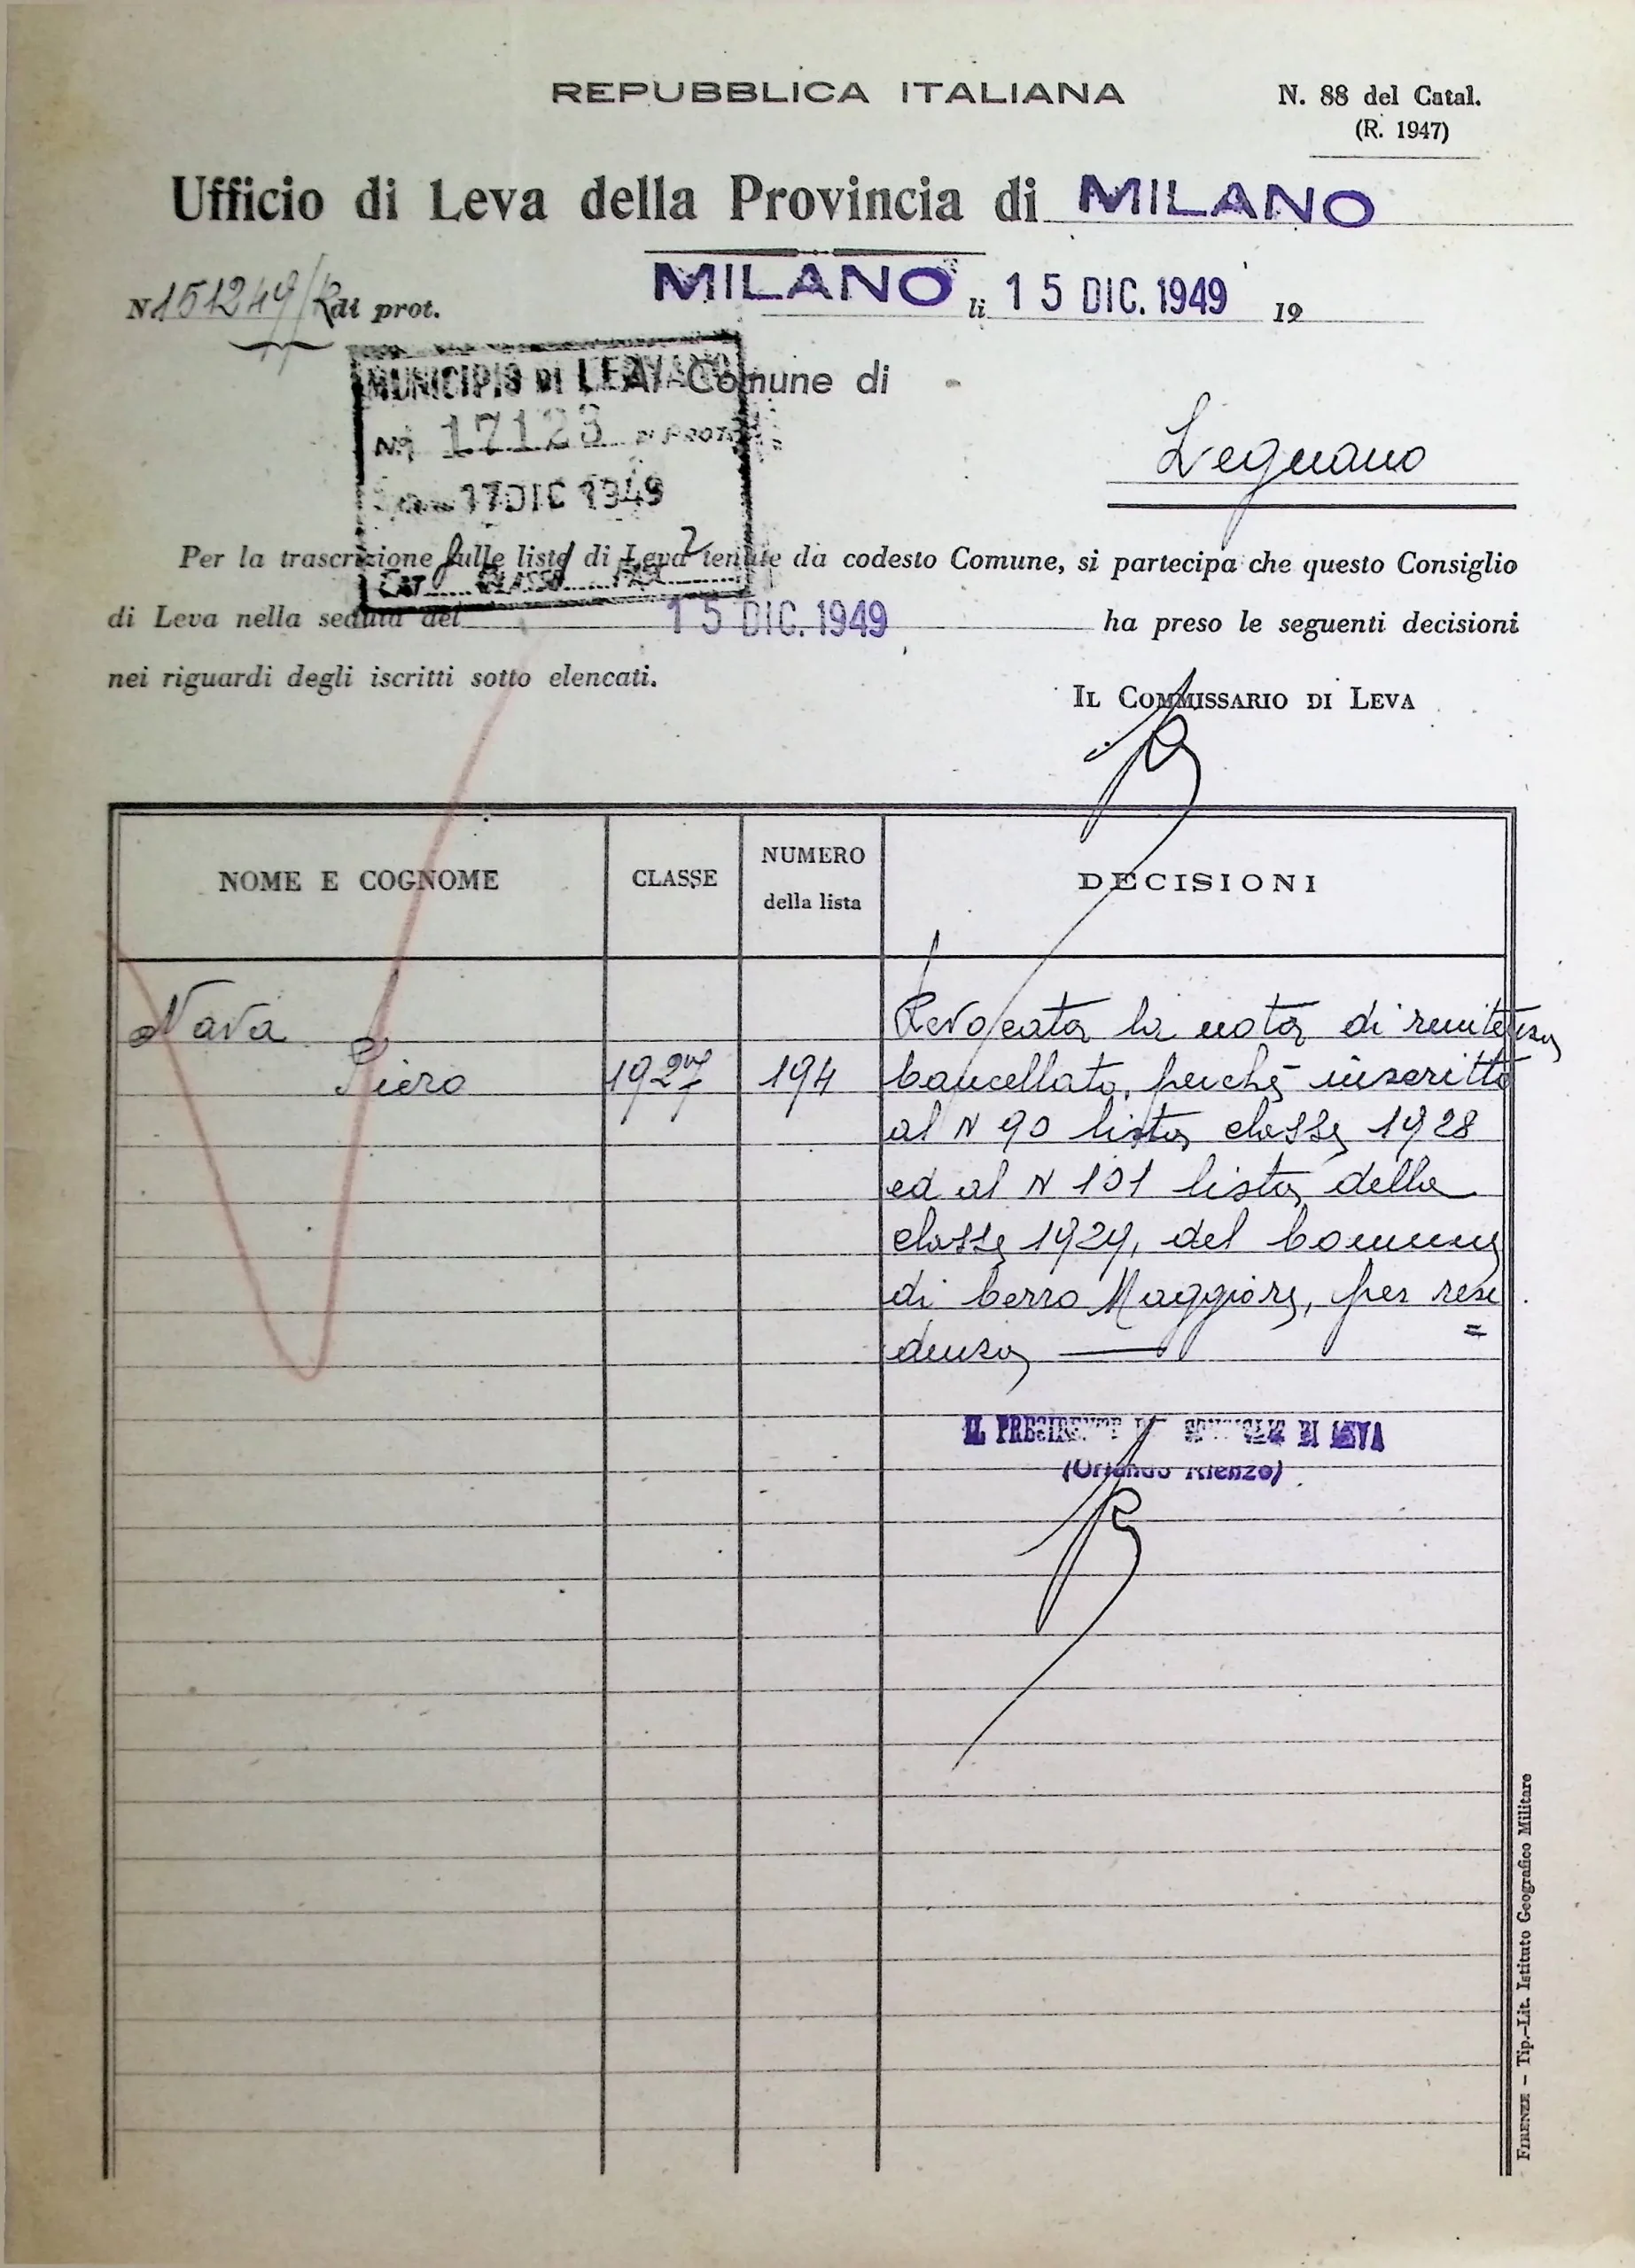 REPUBBLICA ITALIANA
N. 88 del Catal.
(R. 1947)
Ufficio di Leva della Provincia di MILANO
MILANO li 15 DIC. 1949 19
N 151249/R di prot.
MUNICIPIO DI LEGNANO
Al Comune di
N. 17123 DI PROT.
17 DIC 1949
Legnano
CAT. CLASSE
Per la trascrizione sulle liste di Leva tenute da codesto Comune, si partecipa che questo Consiglio
di Leva nella seduta del 15 DIC. 1949 ha preso le seguenti decisioni
nei riguardi degli iscritti sotto elencati.
IL COMMISSARIO DI LEVA
NOME E COGNOME CLASSE NUMERO della lista DECISIONI
Nava Revocata la nota di renitenza
Piero 1927 194 Cancellato, perchè inscritto
al N 90 lista classe 1928
ed al N 101 lista della
classe 1929, del Comune
di Cerro Maggiore, per resi
=
denza
IL PRESIDENTE DEL CONSIGLIO DI LEVA
(Orlando Rienzo)
FIRENZE – Tip.-Lit. Istituto Geografico Militare